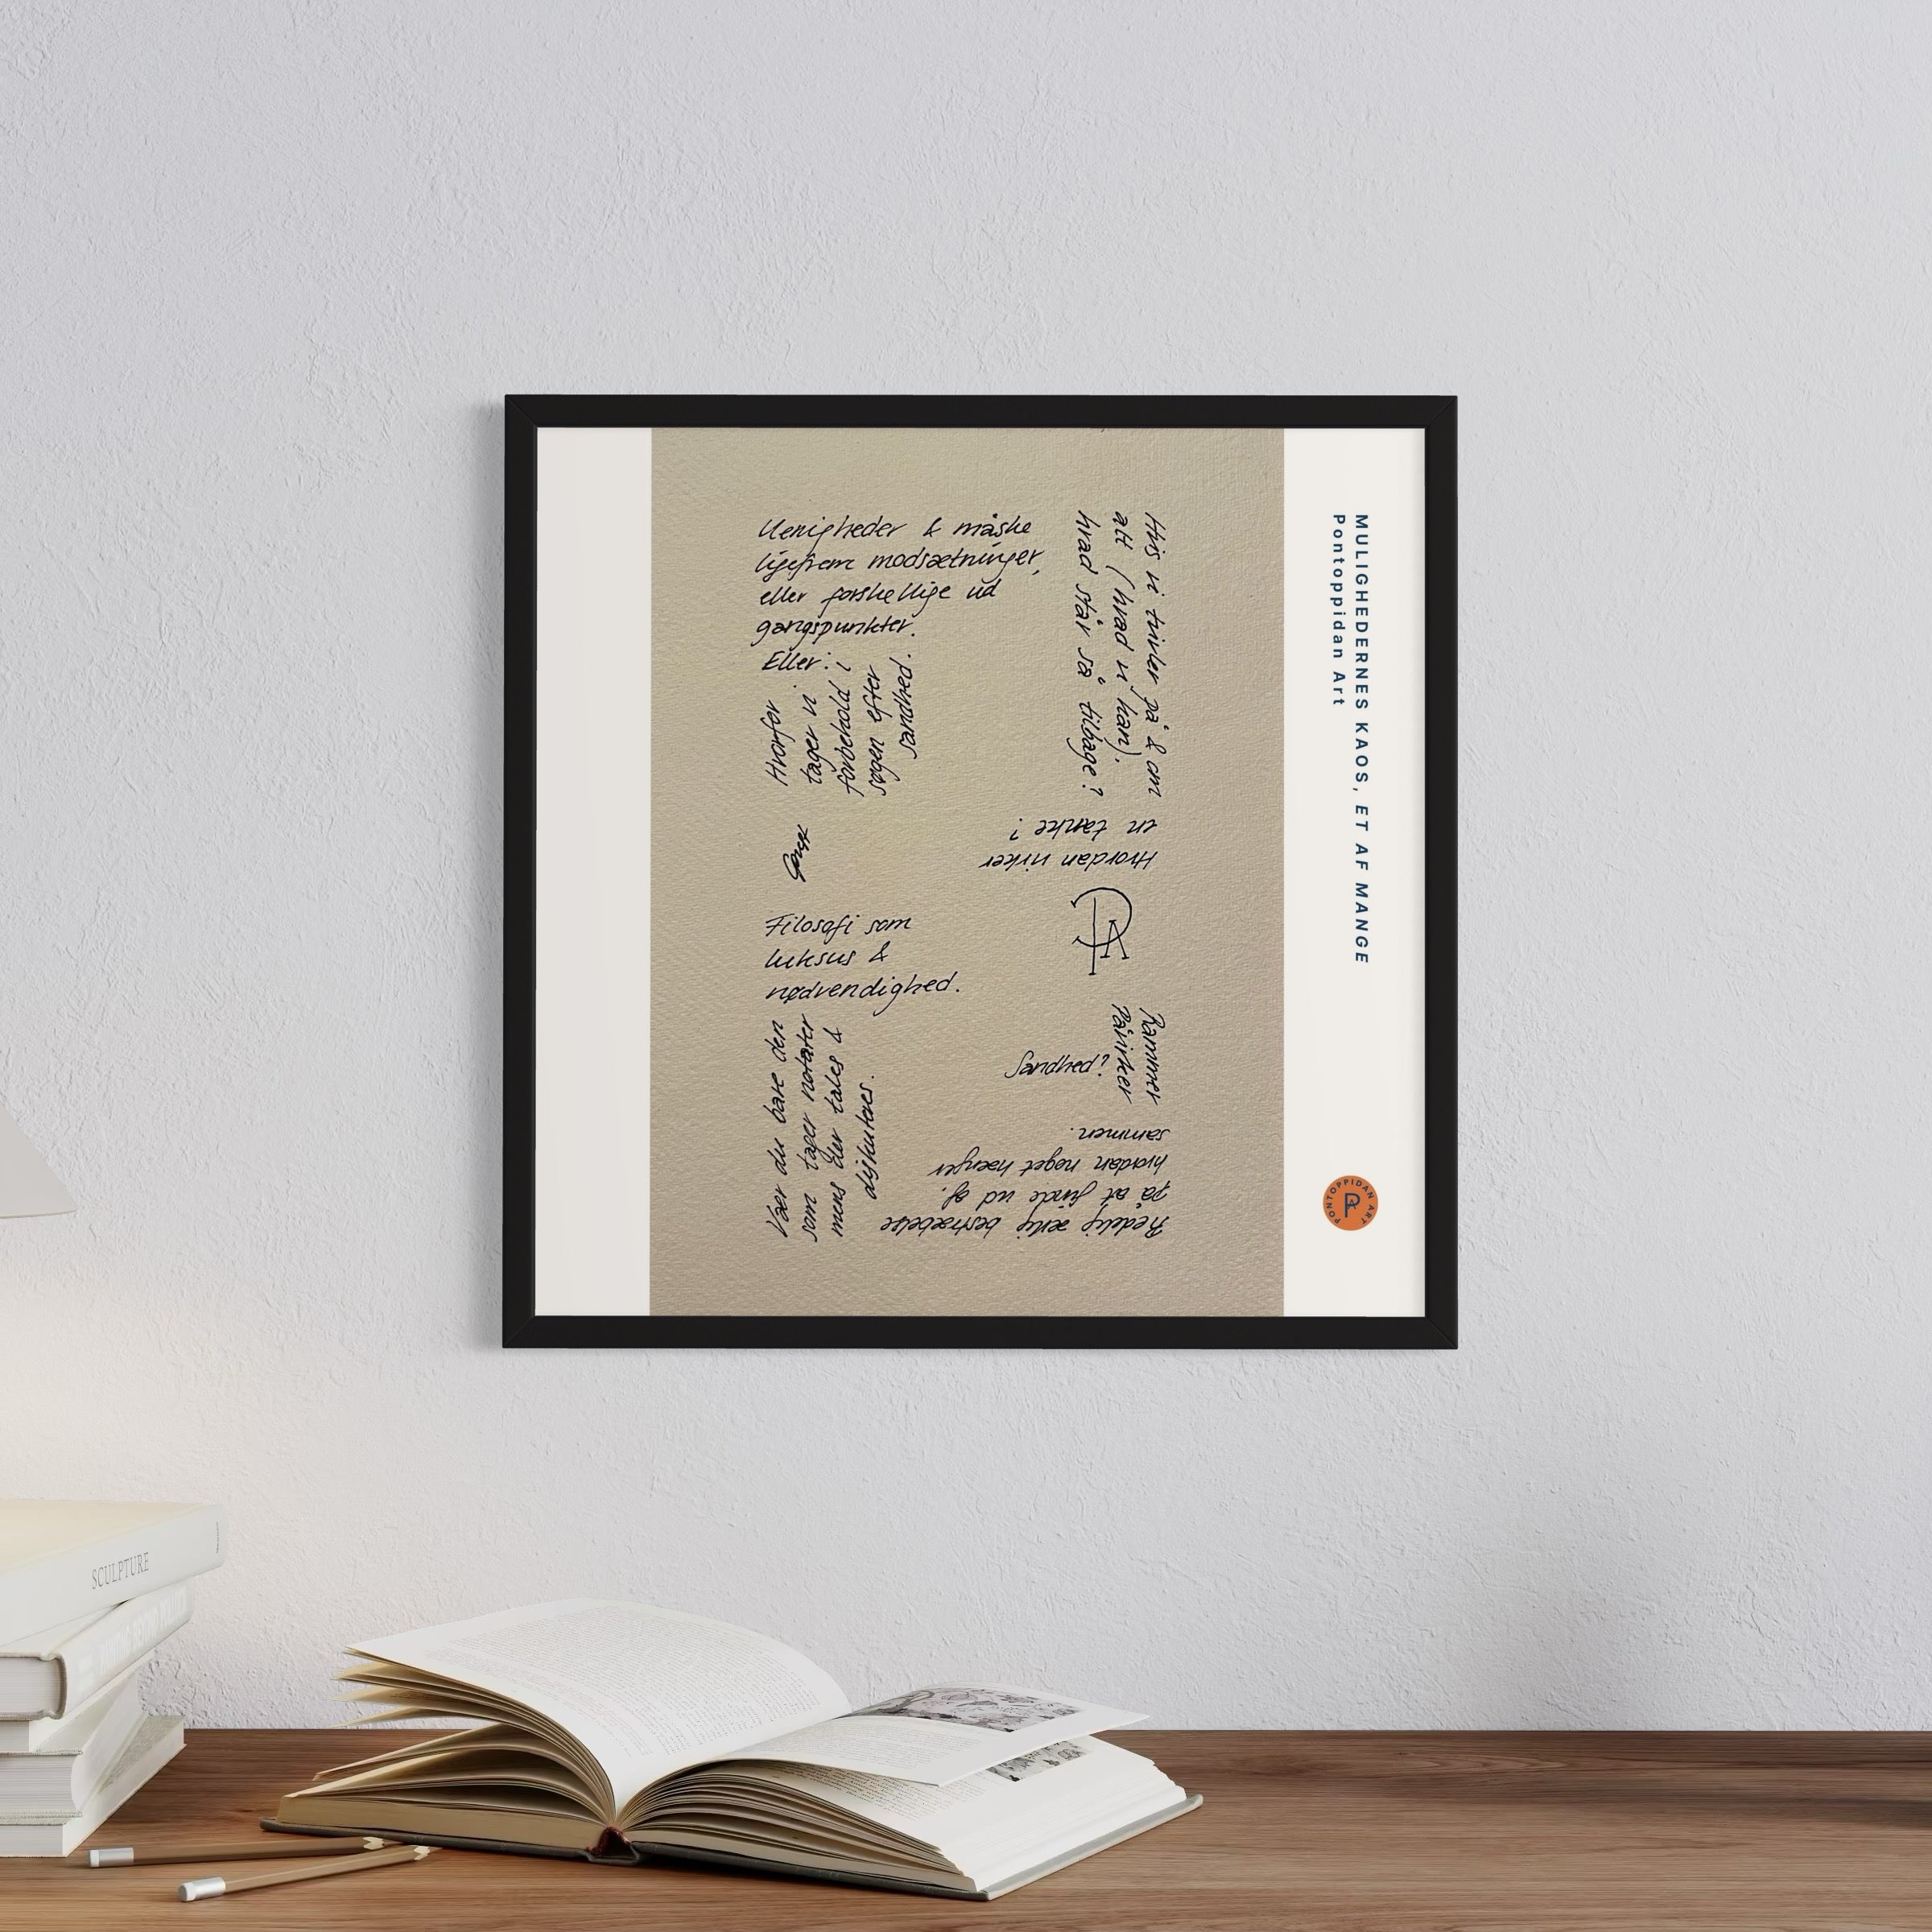 Uenigheder & måske
ligefrem modsætninger,
eller forskellige ud
gangspunkter.
Eller:
Hvorfor
tager vi
forbehold i
søgen efter
sandhed.
Hvis vi tvivler på & om
alt (hvad vi kan),
hvad står så tilbage?
Hvordan virker
en tanke?
Filosofi som
luksus &
nødvendighed.
Rammer
Påvirker
Sandhed?
Vær du bare den
som tager notater
mens der tales &
diskuteres.
Redelig ærlig bestræbelse
på at finde ud af,
hvordan noget hænger
sammen.
MULIGHEDERNES KAOS, ET AF MANGE
Pontoppidan Art
PONTOPPIDAN ART
SCULPTURE